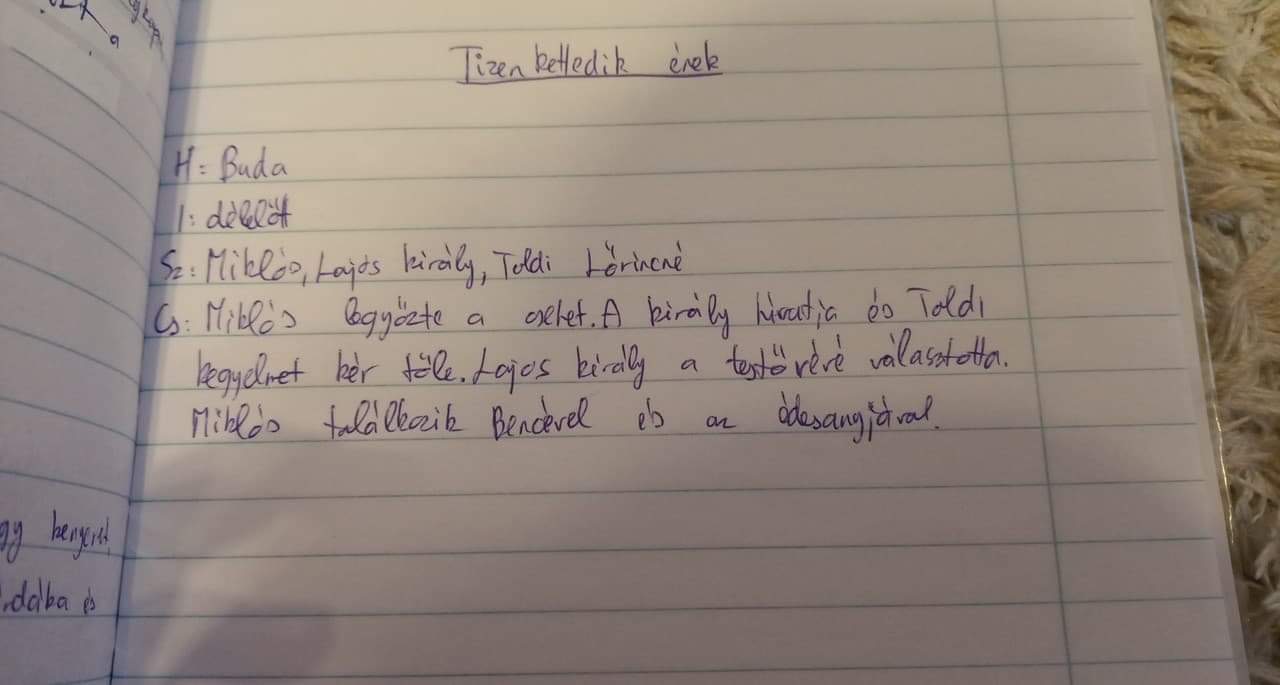 Tizenkettedik ének
H: Buda
I: délelőtt
Sz: Miklós, Lajos király, Toldi Lőrincné
Cs: Miklós legyőzte a csehet. A király hivatja és Toldi
kegyelmet kér tőle. Lajos király a testőrévé választotta.
Miklós találkozik Bencével és az édesanyjával.
gy kenyeret
dába és